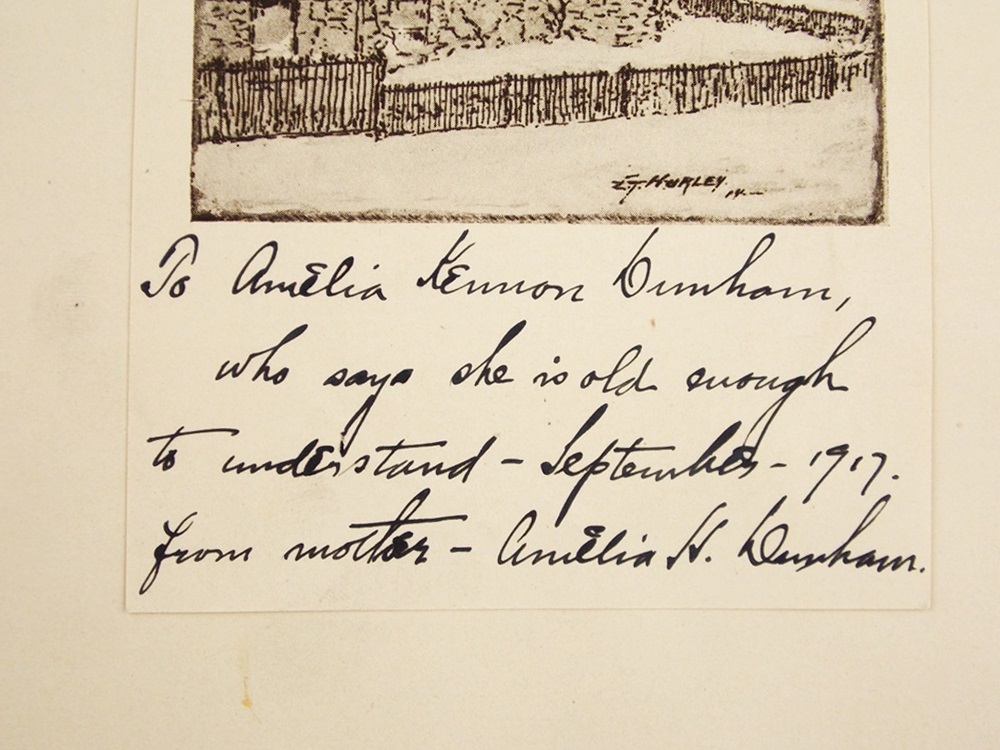 E.T. HURLEY. 14.
To Amelia Kennon Dunham,
who says she is old enough
to understand - September - 1917.
from mother - Amelia H. Dunham.